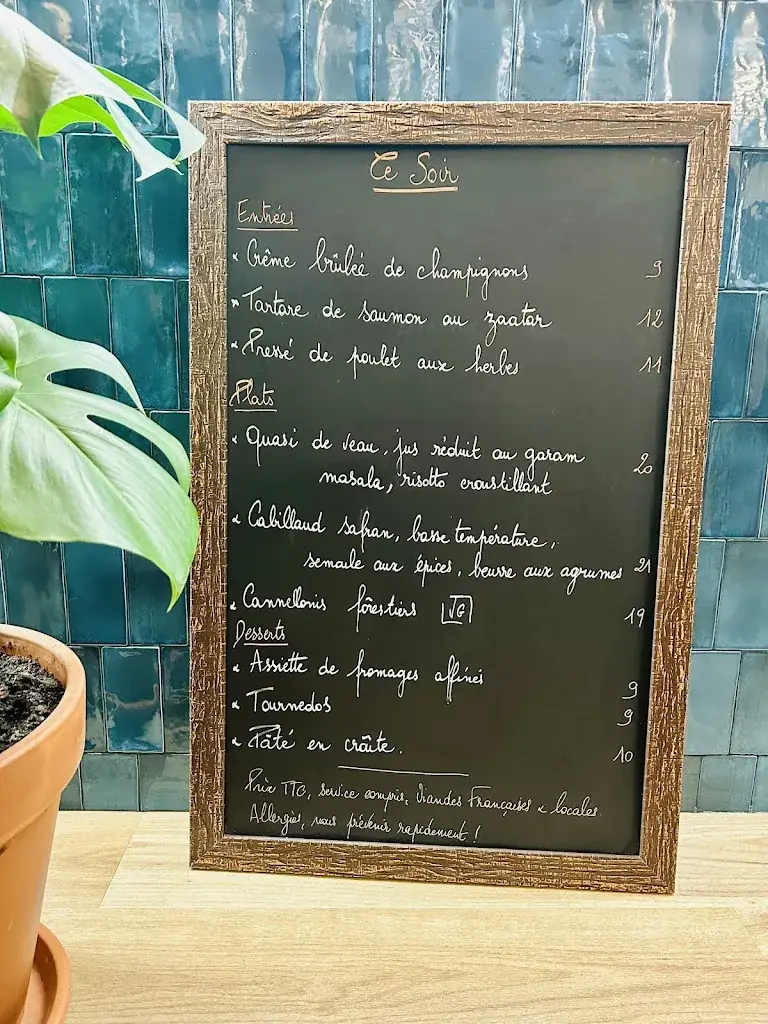 Ce Soir
Entrées
× Crème brûlée de champignons 9
× Tartare de saumon au zaatar 12
× Pressé de poulet aux herbes 11
Plats
× Quasi de veau, jus réduit au garam
masala, risotto croustillant 20
× Cabillaud safran, basse température,
semoule aux épices, beurre aux agrumes 21
× Cannellonis forestiers VG 19
Desserts
× Assiette de fromages affinés 9
× Tournedos 9
× Pâté en croûte. 10
Prix TTC, service compris, Viandes Françaises & locales
Allergies, nous prévenir rapidement !